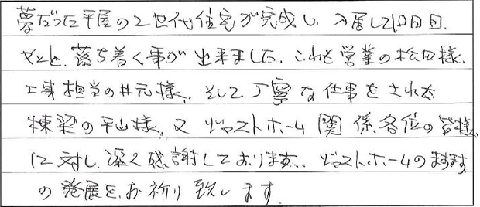 夢だった平屋の2世代住宅が完成し、入居して10日目。
やっと、落ち着く事が出来ました。これも営業の松田様、
工事担当の井元様、そして丁寧な仕事をされた
棟梁の平山様、又 ジャストホーム関係各位の皆様
に対し、深く感謝しております。ジャストホームのますます
の発展を、お祈り致します。